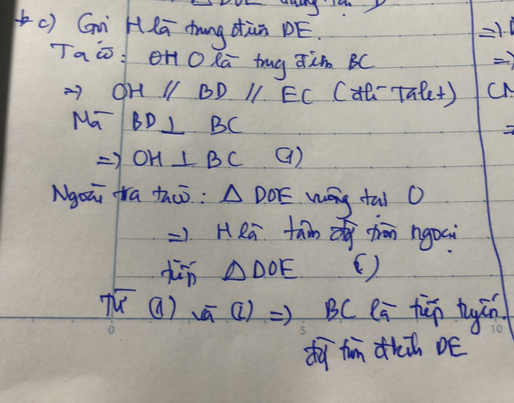 c) Gọi H là trung điểm DE.
Ta có: OH O là trung điểm BC
=> OH // BD // EC (đlí Talet)
Mà BD ⊥ BC
=> OH ⊥ BC (1)
Ngoài ra ta có: Δ DOE vuông tại O
=> H là tâm đg tròn ngoại
tiếp Δ DOE (2)
Từ (1) và (2) => BC là tiếp tuyến
đg tròn đkính DE
=>
=>
CM
0 5 10